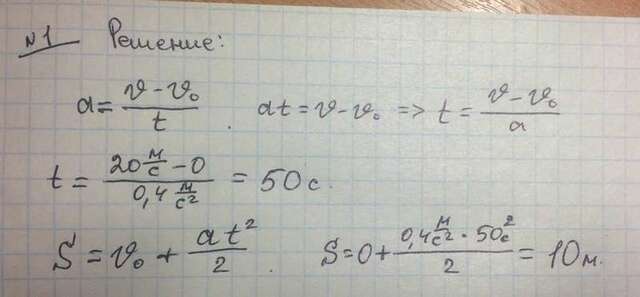 №1 Решение:
a = (v - v₀)/t . at = v - v₀ => t = (v - v₀)/a
t = (20 м/с - 0)/(0,4 м/с²) = 50 с
S = v₀ + at²/2 . S = 0 + (0,4 м/с² · 50с²)/2 = 10 м.